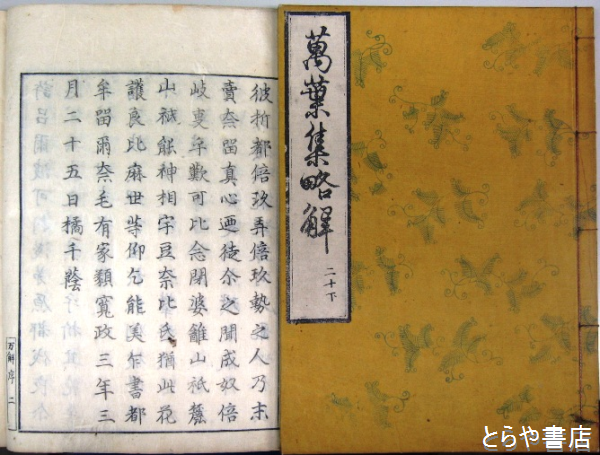 萬葉集略解
二十下
彼析都倍玖弄倍玖勢之人乃末
賣奈留真心迺徒尒之聞成奴倍
岐叓乎歎可比念閇婆雖山祇麓
山祇能神相宇豆奈比氐猶此花
護良比麻世等仰乞能美乍書都
牟留爾奈毛有家類寬政三年三
月二十五日橘千蔭
万解序 二
とらや書店